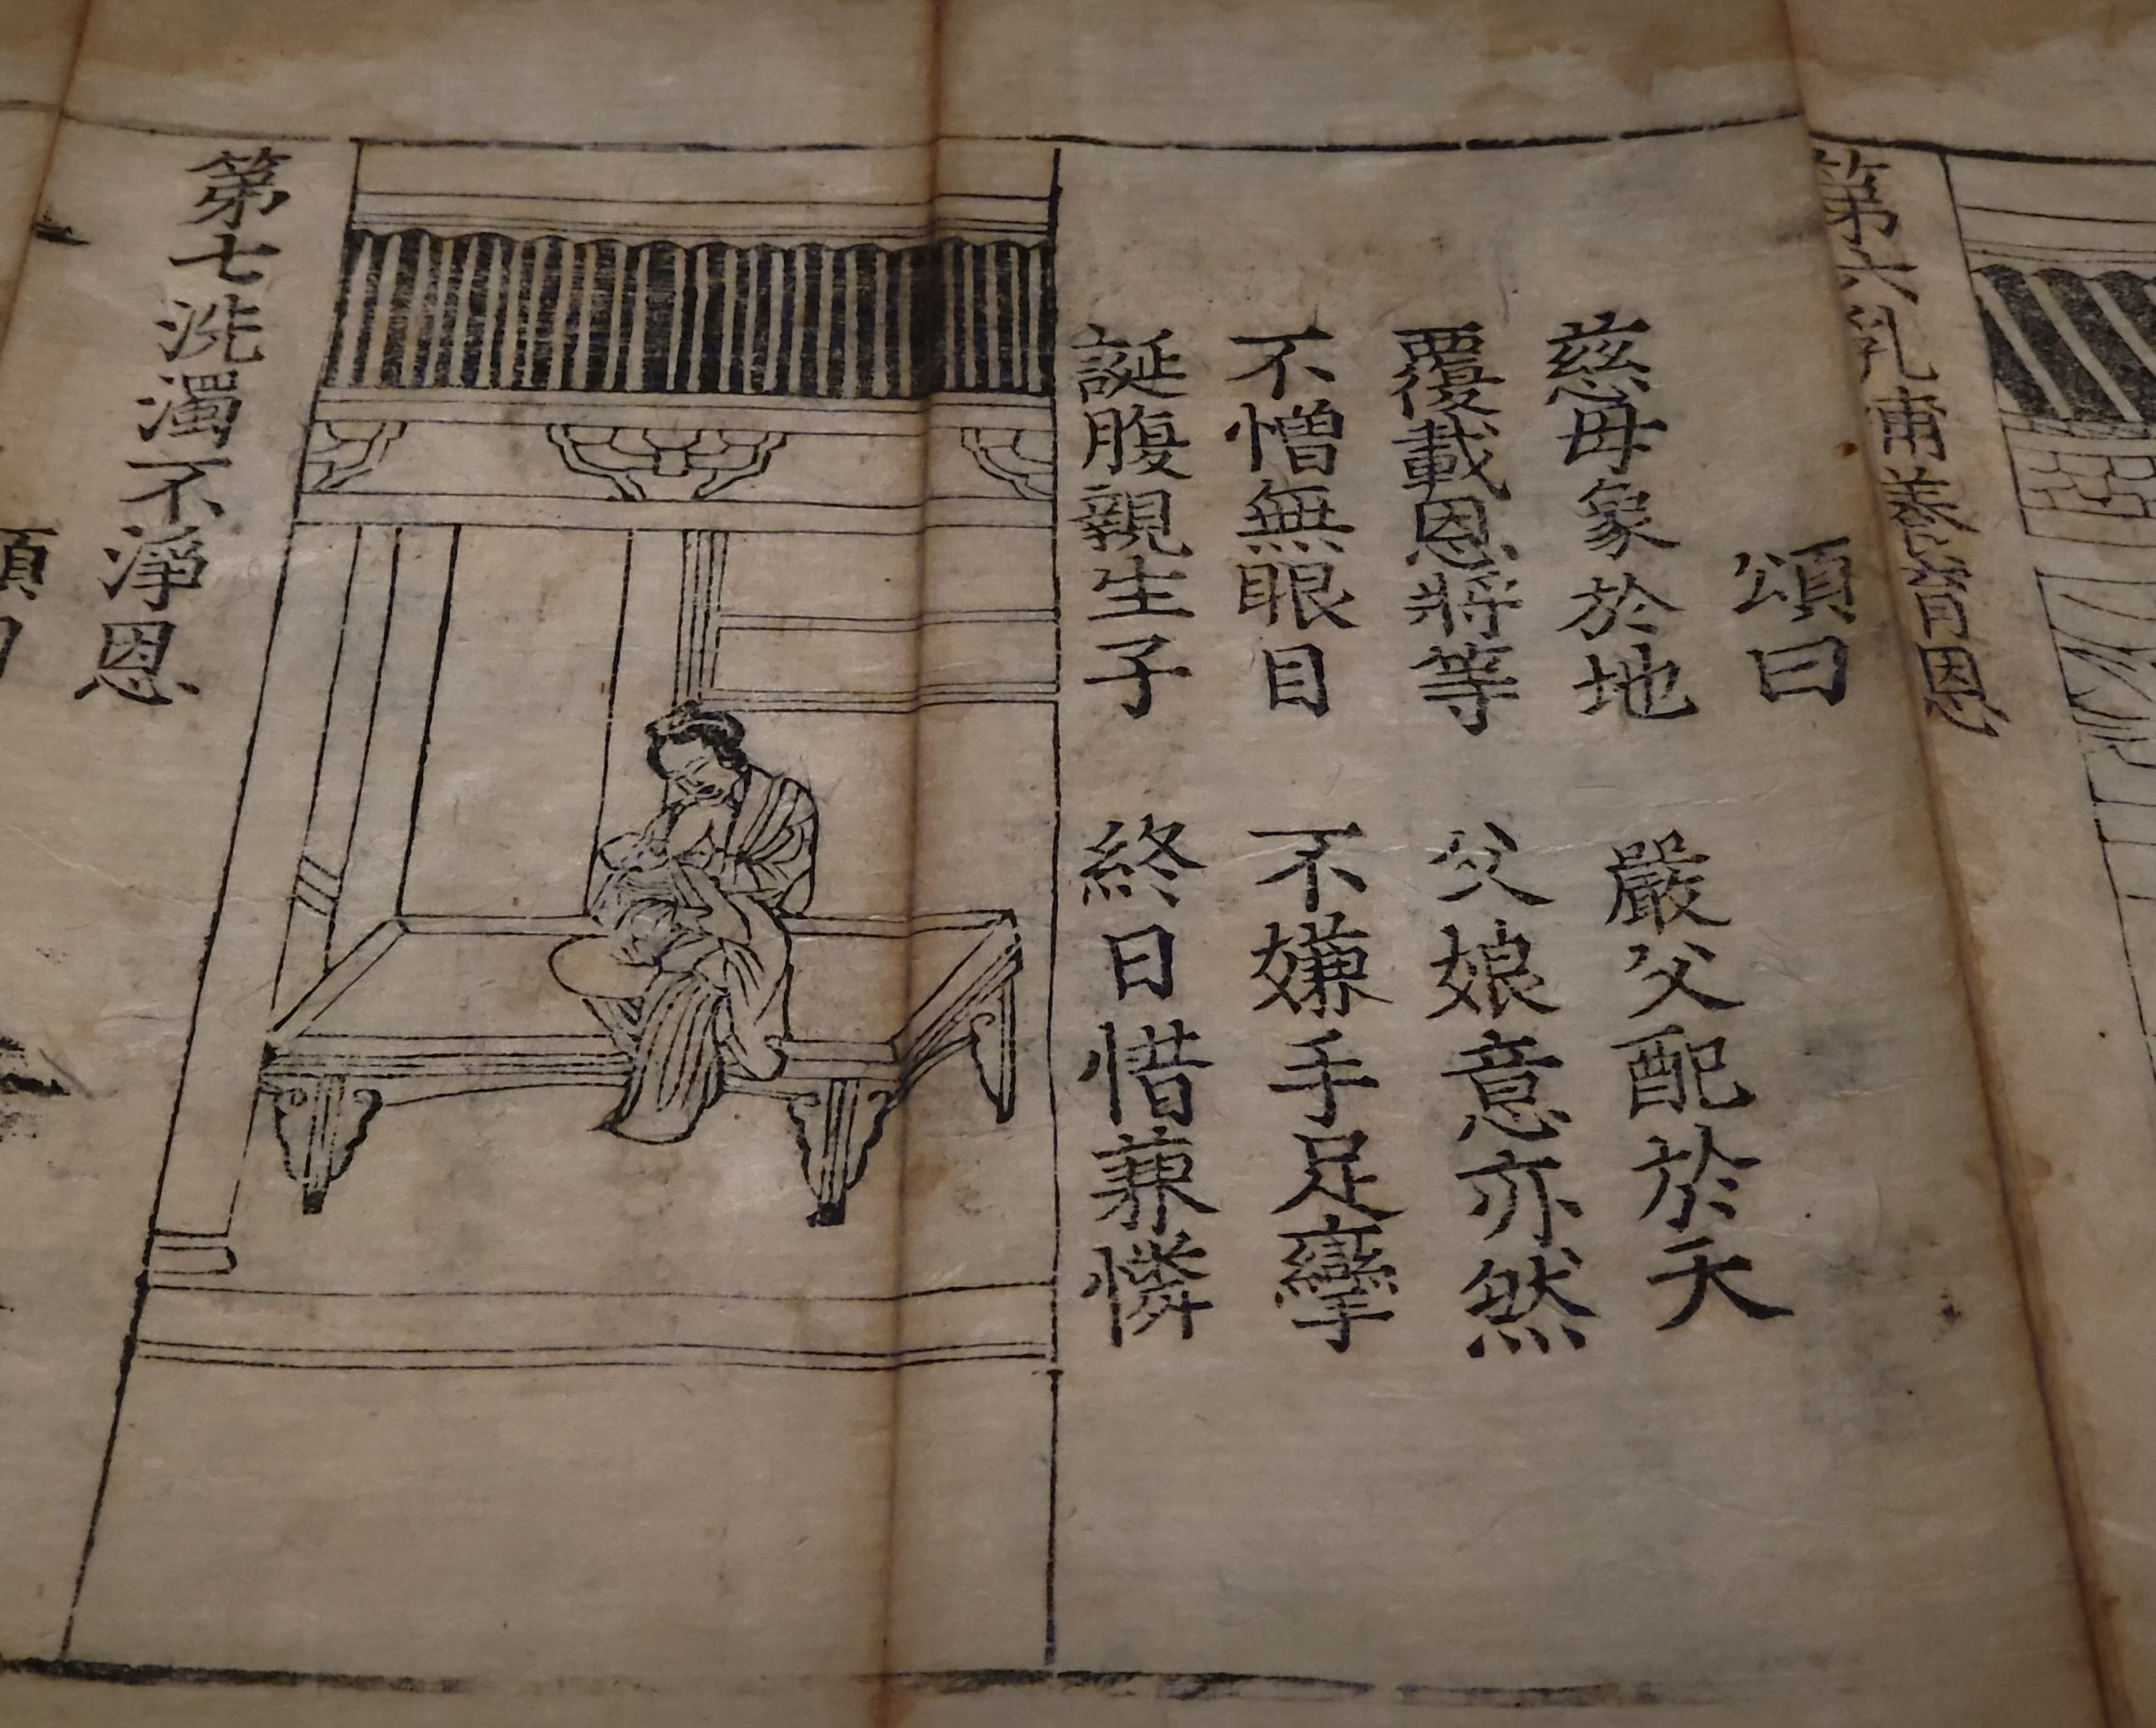 第六乳甫養育恩
頌曰
慈母象於地 嚴父配於天
覆載恩將等 父娘意亦然
不憎無眼目 不嫌手足攣
誕腹親生子 終日惜兼憐
第七洗濁不淨恩
頌曰